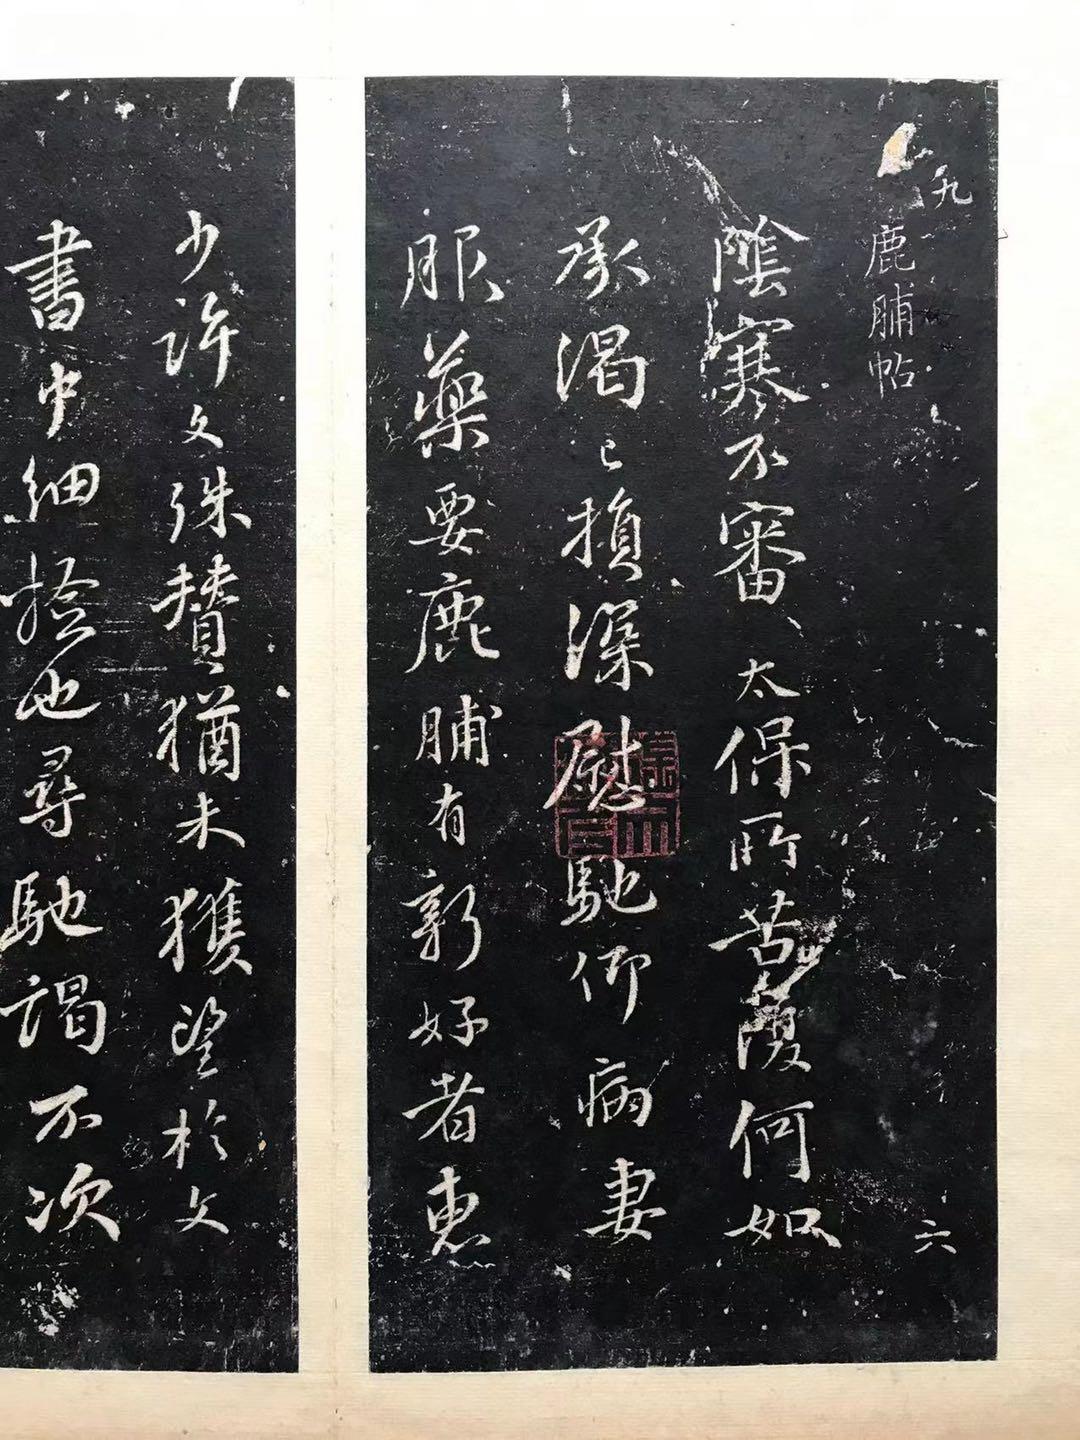 九
鹿脯帖
六
陰寒不審太保所苦復何如
承渴已損深慰馳仰病妻
服藥要鹿脯有新好者惠
少許文殊贊猶未獲望於文
書中細撿也尋馳謁不次